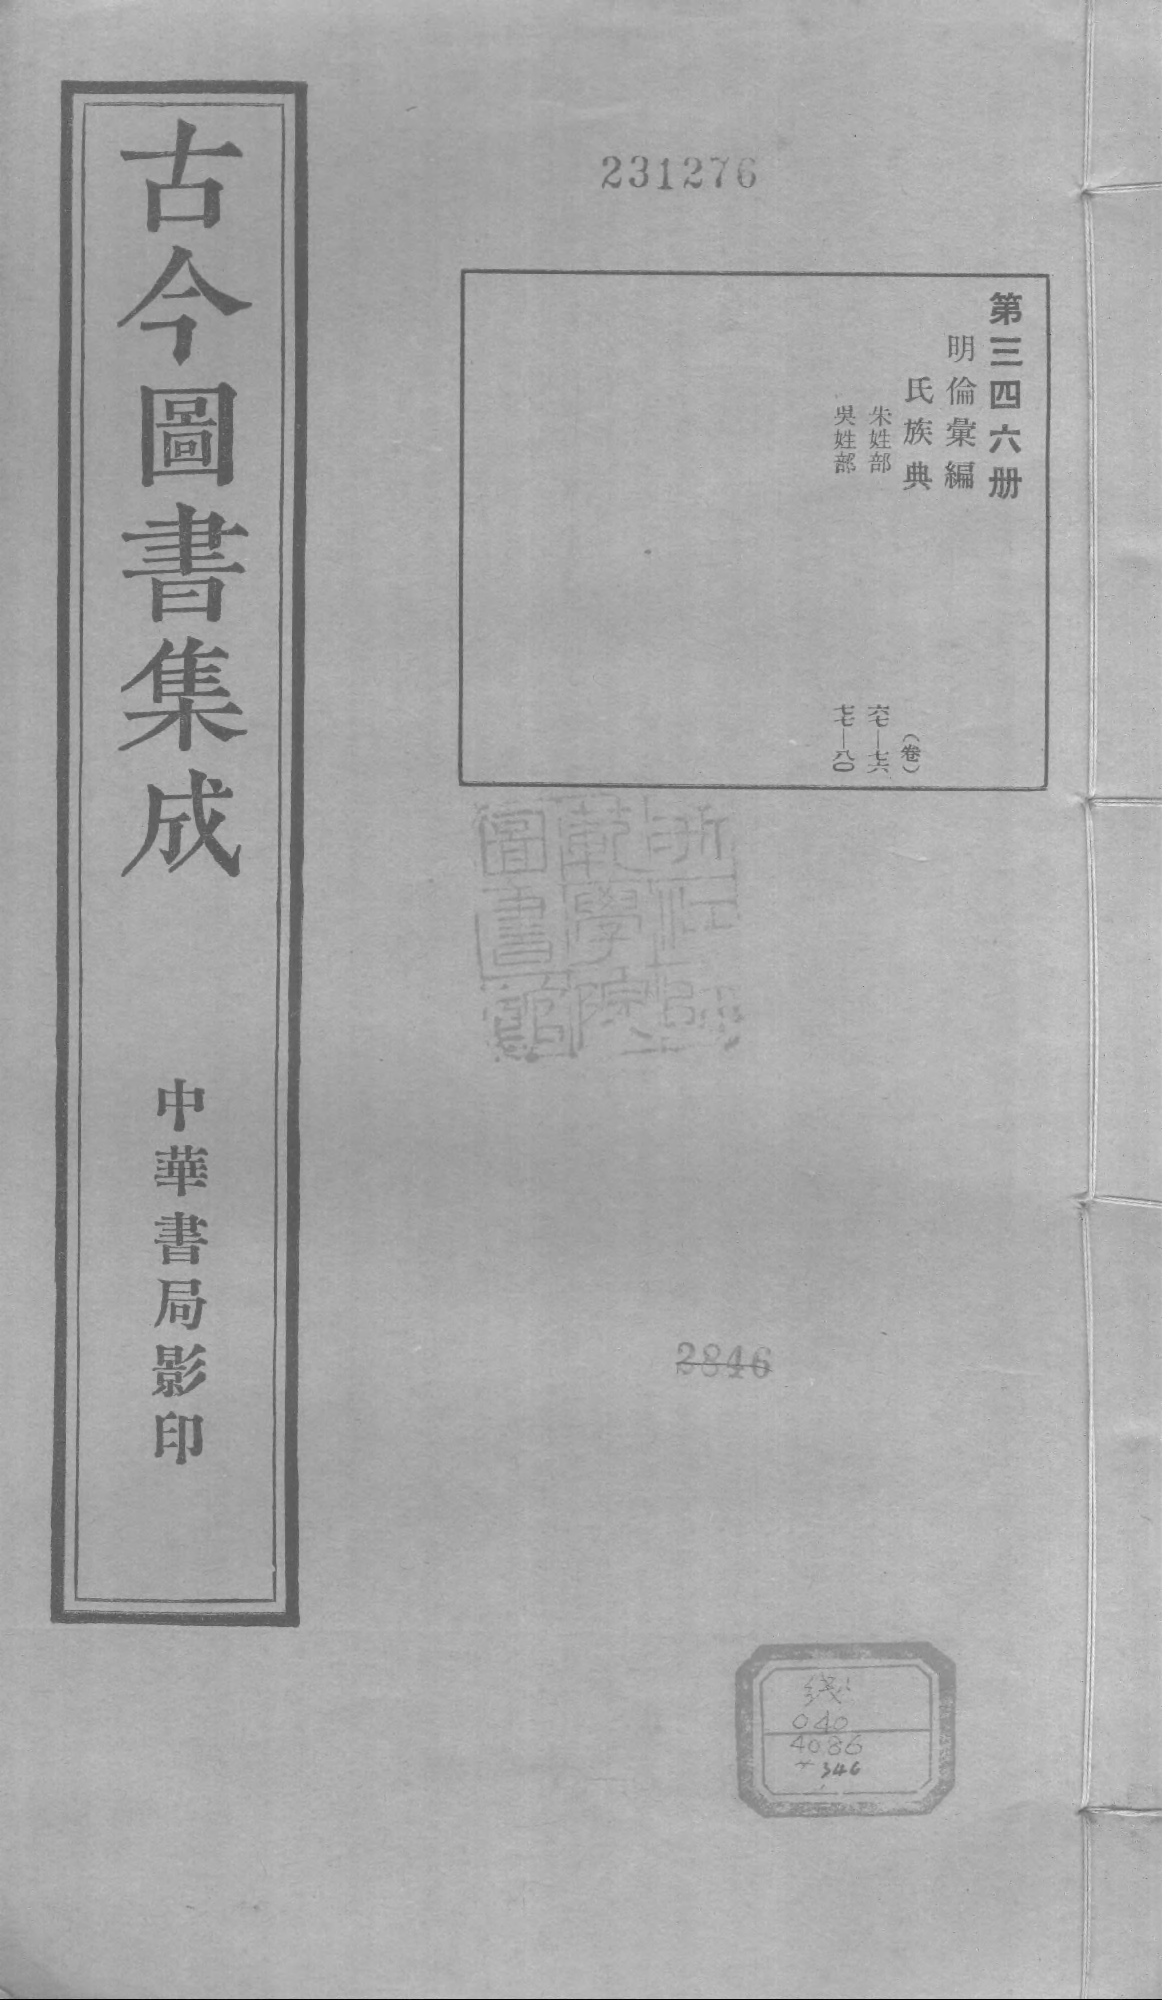 231276
第三四六册
明倫彙編
氏族典
(卷)
朱姓部 六七—七六
吳姓部 七七—八〇
古今圖書集成
中華書局影印
浙江師
範學院
圖書館
3846
线
040
4086
346